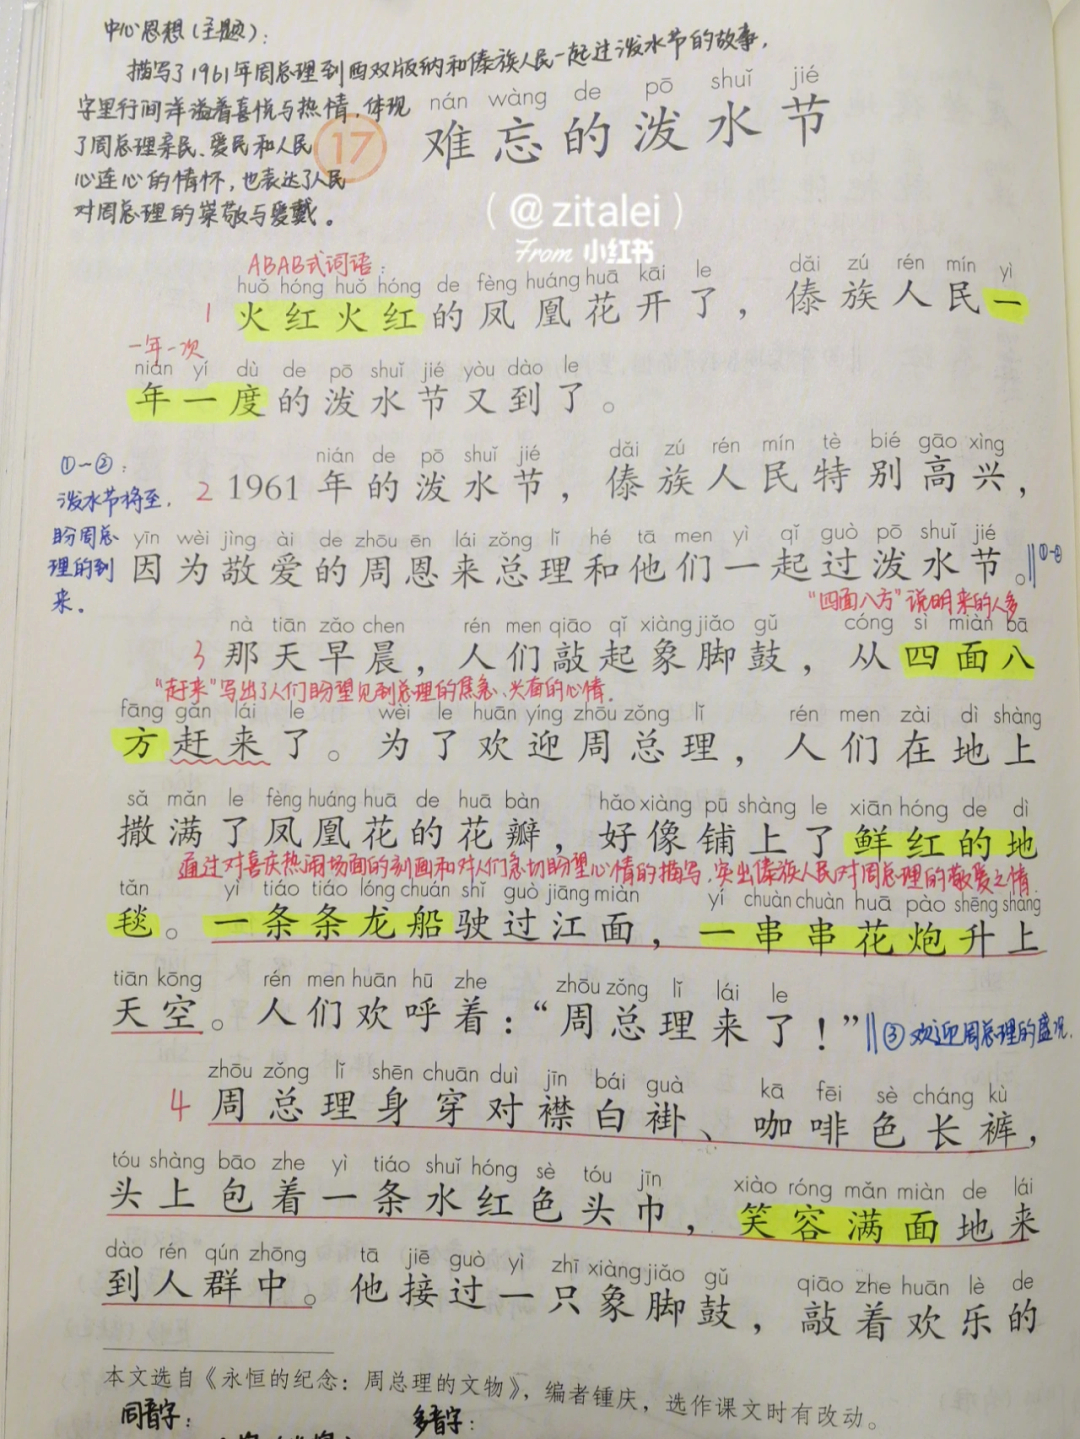 中心思想（主题）：
描写了1961年周总理到西双版纳和傣族人民一起过泼水节的故事，
字里行间洋溢着喜悦与热情，体现
了周总理亲民、爱民和人民
心连心的情怀，也表达了人民
对周总理的崇敬与爱戴。
17
nán wàng de pō shuǐ jié
难忘的泼水节
(@zitalei)
From 小红书
ABAB式词语：
huǒ hóng huǒ hóng de fèng huáng huā kāi le dǎi zú rén mín yì
1 火红火红的凤凰花开了，傣族人民一
一年一次
nián yí dù de pō shuǐ jié yòu dào le
年一度的泼水节又到了。
nián de pō shuǐ jié dǎi zú rén mín tè bié gāo xìng
2 1961年的泼水节，傣族人民特别高兴，
①-②：
泼水节将至，
盼周总
理的到
来。
yīn wèi jìng ài de zhōu ēn lái zǒng lǐ hé tā men yì qǐ guò pō shuǐ jié
因为敬爱的周恩来总理和他们一起过泼水节。
①-②
"四面八方"说明来的人多
nà tiān zǎo chen rén men qiāo qǐ xiàng jiǎo gǔ cóng sì miàn bā
3 那天早晨，人们敲起象脚鼓，从四面八
"赶来"写出了人们盼望见到总理的焦急、兴奋的心情。
fāng gǎn lái le wèi le huān yíng zhōu zǒng lǐ rén men zài dì shàng
方赶来了。为了欢迎周总理，人们在地上
sǎ mǎn le fèng huáng huā de huā bàn hǎo xiàng pū shàng le xiān hóng de dì
撒满了凤凰花的花瓣，好像铺上了鲜红的地
通过对喜庆热闹场面的刻画和对人们急切盼望心情的描写，突出傣族人民对周总理的敬爱之情。
tǎn yì tiáo tiáo lóng chuán shǐ guò jiāng miàn yí chuàn chuàn huā pào shēng shàng
毯。一条条龙船驶过江面，一串串花炮升上
tiān kōng rén men huān hū zhe zhōu zǒng lǐ lái le
天空。人们欢呼着：“周总理来了！”
③欢迎周总理的盛况。
zhōu zǒng lǐ shēn chuān duì jīn bái guà kā fēi sè cháng kù
4 周总理身穿对襟白褂、咖啡色长裤，
tóu shàng bāo zhe yì tiáo shuǐ hóng sè tóu jīn xiào róng mǎn miàn de lái
头上包着一条水红色头巾，笑容满面地来
dào rén qún zhōng tā jiē guò yì zhī xiàng jiǎo gǔ qiāo zhe huān lè de
到人群中。他接过一只象脚鼓，敲着欢乐的
本文选自《永恒的纪念：周总理的文物》，编者锺庆，选作课文时有改动。
同音字：
多音字：